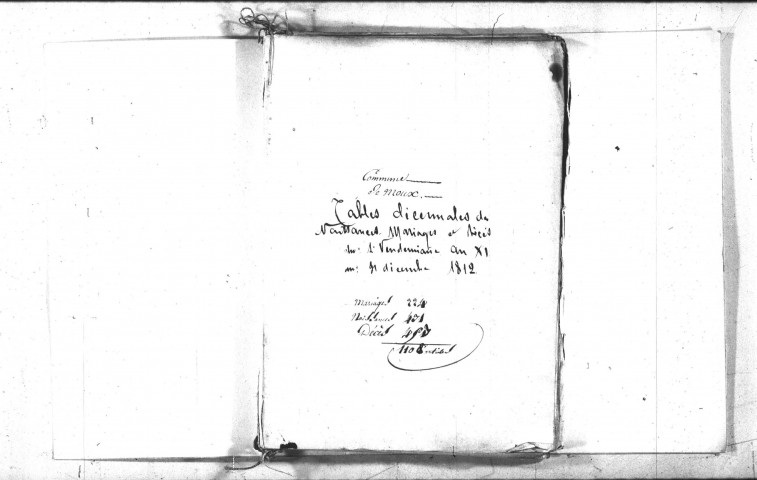 Commune
De Moux.
Tables décennales de
Naissances Mariages et Décès
du 1er Vendemiaire an XI
au 31 décembre 1812
Mariages 224
Naissances
Décès
1108 articles